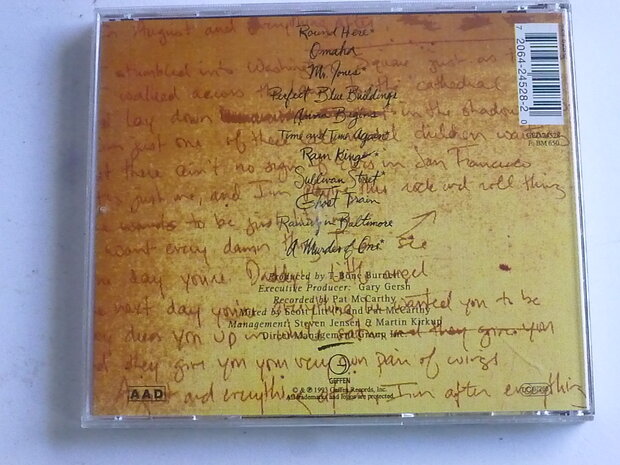 Round Here*
Omaha
Mr. Jones*
Perfect Blue Buildings
Anna Begins
Time and Time Again
Rain King*
Sullivan Street*
Ghost Train
Raining in Baltimore
A Murder of One*
Produced by T-Bone Burnett
Executive Producer: Gary Gersh
Recorded by Pat McCarthy
Mixed by Scott Litt and Pat McCarthy
Management: Steven Jensen & Martin Kirkup
Direct Management Group
GEFFEN
© & ℗ 1993 Geffen Records, Inc.
All trademarks and logos are protected.
AAD
7 2064-24528-2 0
GED 24528
F: BM 650
August and everything
stumbled into Washington Square just as
walked across the cathedral
lay down in the shadow
just one of these children
there ain't no sign in San Francisco
just me, and I'm this rock and roll thing
wants to be just
want every damn thing I see
day you're Daddy's little angel
next day you're everything wanted you to be
dress you up in and they give you
they give you your very own pair of wings
August and everything I'm after everything